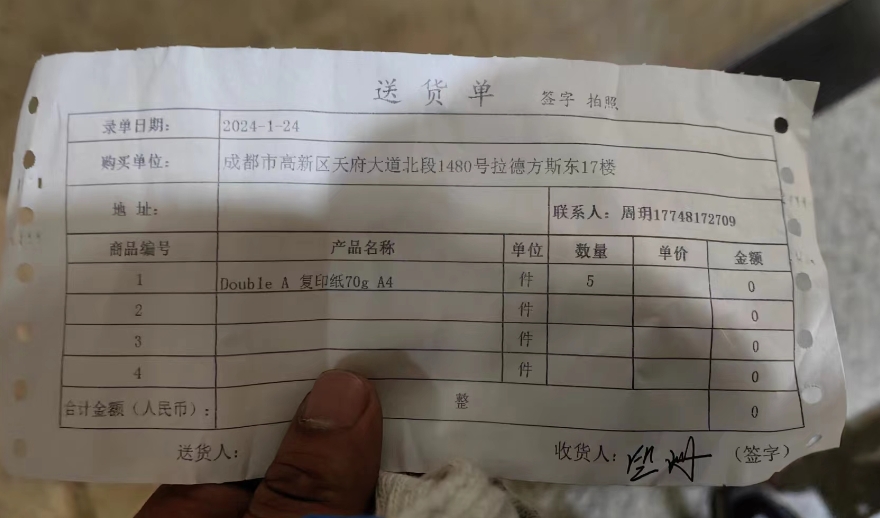 送货单 签字 拍照
录单日期: 2024-1-24
购买单位: 成都市高新区天府大道北段1480号拉德方斯东17楼
地 址: 联系人: 周玥17748172709
商品编号 产品名称 单位 数量 单价 金额
1 Double A 复印纸70g A4 件 5 0
2 件 0
3 件 0
4 件 0
合计金额（人民币）: 整 0
送货人: 收货人: (签字)